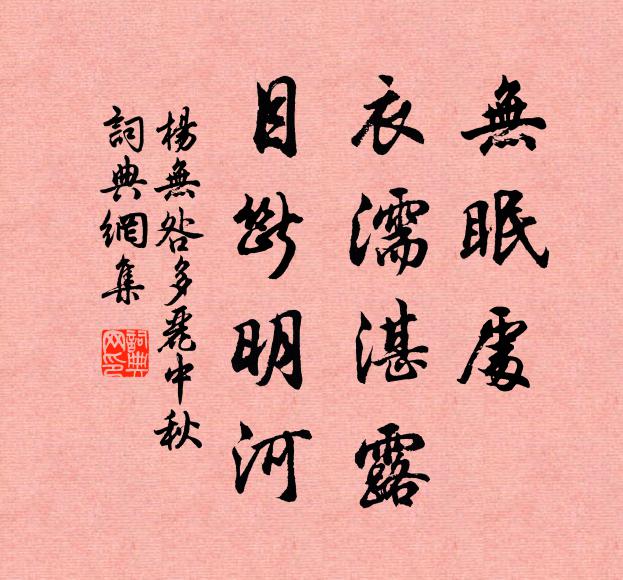 無眠處
衣濡湛露
目斷明河
楊無咎多麗中秋
詞典網集
詞典網印